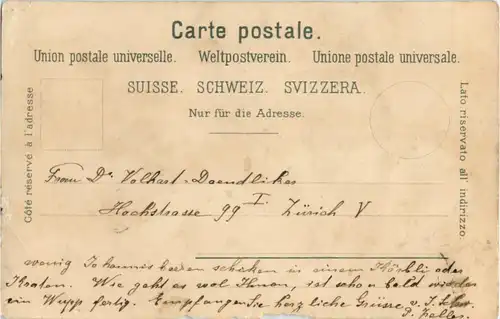 Carte postale.
Union postale universelle. Weltpostverein. Unione postale universale.
SUISSE. SCHWEIZ. SVIZZERA.
Nur für die Adresse.
Côté réservé à l'adresse
Lato riservato all' indirizzo.
Frau Dr Volkart-Daendliker
Hochstrasse 99 I Zürich V
wenig Johannisbeeren schicken in einem Körbli oder
Kraten. Wie geht es wol Ihnen, ist schon bald wieder
ein Wupp fertig. Empfangen Sie herzliche Grüsse v.